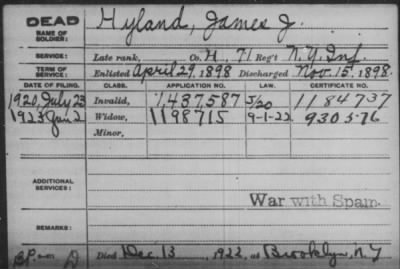 DEAD Hyland, James J.
NAME OF SOLDIER:
SERVICE: Late rank, Co. H, 71 Reg't N.Y. Inf.
TERM OF SERVICE: Enlisted April 29, 1898 Discharged Nov. 15, 1898.
DATE OF FILING. CLASS. APPLICATION NO. LAW. CERTIFICATE NO.
1920, July 23 Invalid, 1437587 5/20 1184737
1923 Jan 2 Widow, 1198715 9-1-22 930576
Minor,
ADDITIONAL SERVICES:
War with Spain.
REMARKS:
Died Dec. 13, 1922, at Brooklyn, N.Y.